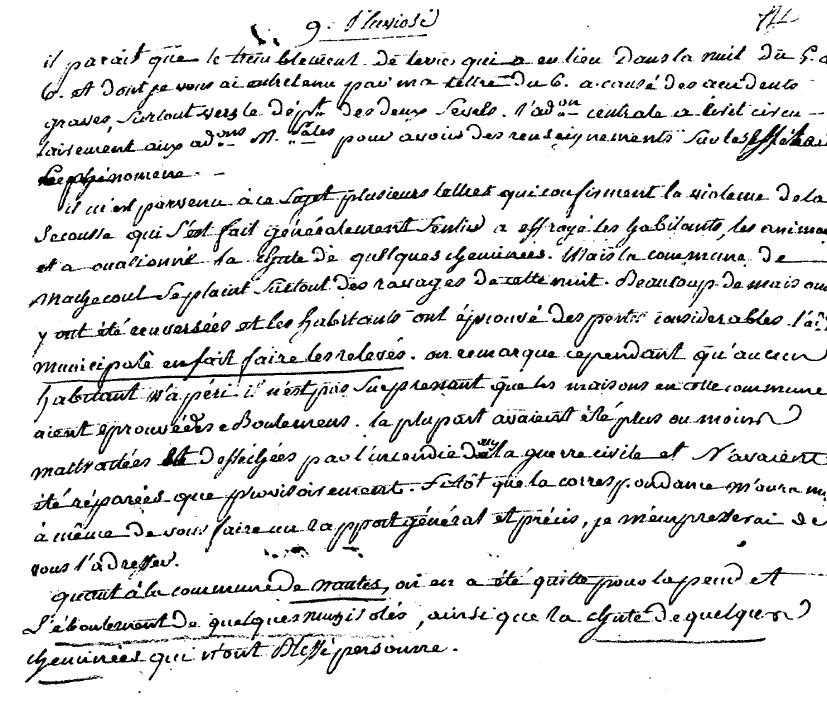 9. Pluviose
il parait que le tremblement de terre qui a eu lieu dans la nuit du 5. a
6. et dont je vous ai entretenu par ma lettre du 6. a causé des accidents
graves, surtout vers le dépt. des deux Sevres. l'adon centrale a écrit circu-
lairement aux adons Mpales pour avoir des renseignements sur les effets de
ce phénomene.
il m'est parvenu à ce sujet plusieurs lettres qui confirment la violence de la
secousse qui s'est fait généralement sentir a effrayé les habitants, les animau
et a occasionné la chute de quelques cheminées. Mais la commune de
Machecoul se plaint surtout des ravages de cette nuit. Beaucoup de maisons
y ont été renversées et les habitants ont éprouvé des pertes considerables. l'aon
municipale en fait faire les relevés. on remarque cependant qu'aucun
habitant n'a péri il n'est pas surprenant que les maisons en cette commune
aient éprouvé des eboulemens. la plupart avaient été plus ou moins
maltraitées et dessechées par l'incendie de la guerre civile et n'avaient
été réparées que provisoirement. Sitôt que la correspondance m'aura mis
à même de vous faire un rapport général et précis, je m'empresserai de
vous l'adresser.
quant à la commune de nantes, on en a été quitte pour la peur et
l'éboulement de quelques murs isolés, ainsi que la chute de quelques
cheminées qui n'ont blessé personne.